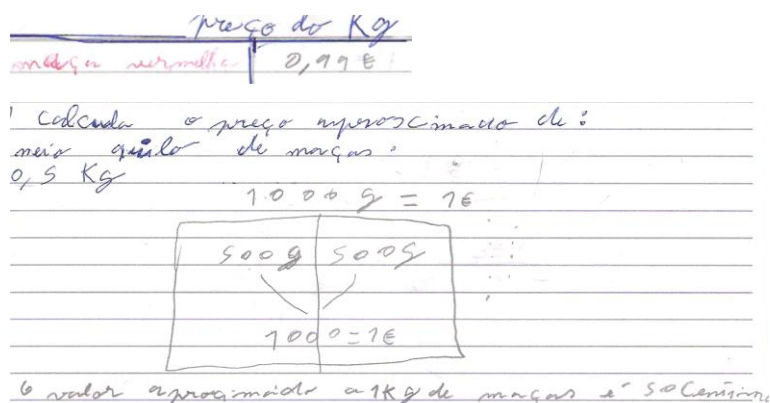 preço do Kg
maçã vermelha 0,99 €
Calcula o preço aproscimado de:
meio quilo de maças.
0,5 Kg
1000 g = 1€
500g 500g
1000=1€
O valor aprogimado a 1Kg de maças é 50 Centimo